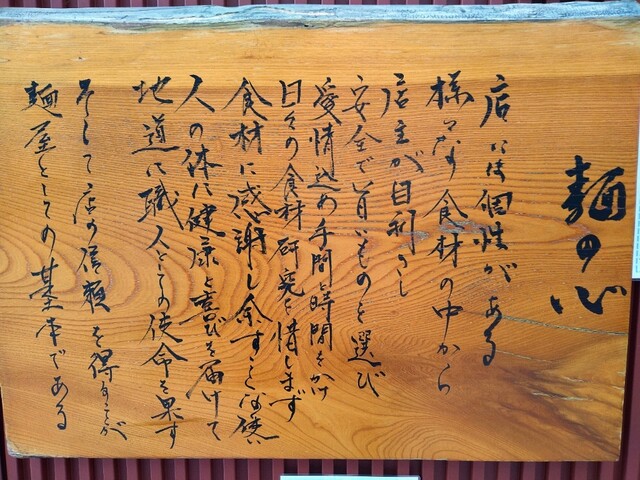 麺の心
店には個性がある
様々な食材の中から
店主が目利きし
安全で旨いものを選び
愛情込め手間と時間をかけ
日々の食材研究を惜しまず
食材に感謝し余すことなく使い
人の体に健康と喜びを届けて
地道に職人としての使命を果す
そして店の信頼を得ることが
麺屋としての基本である